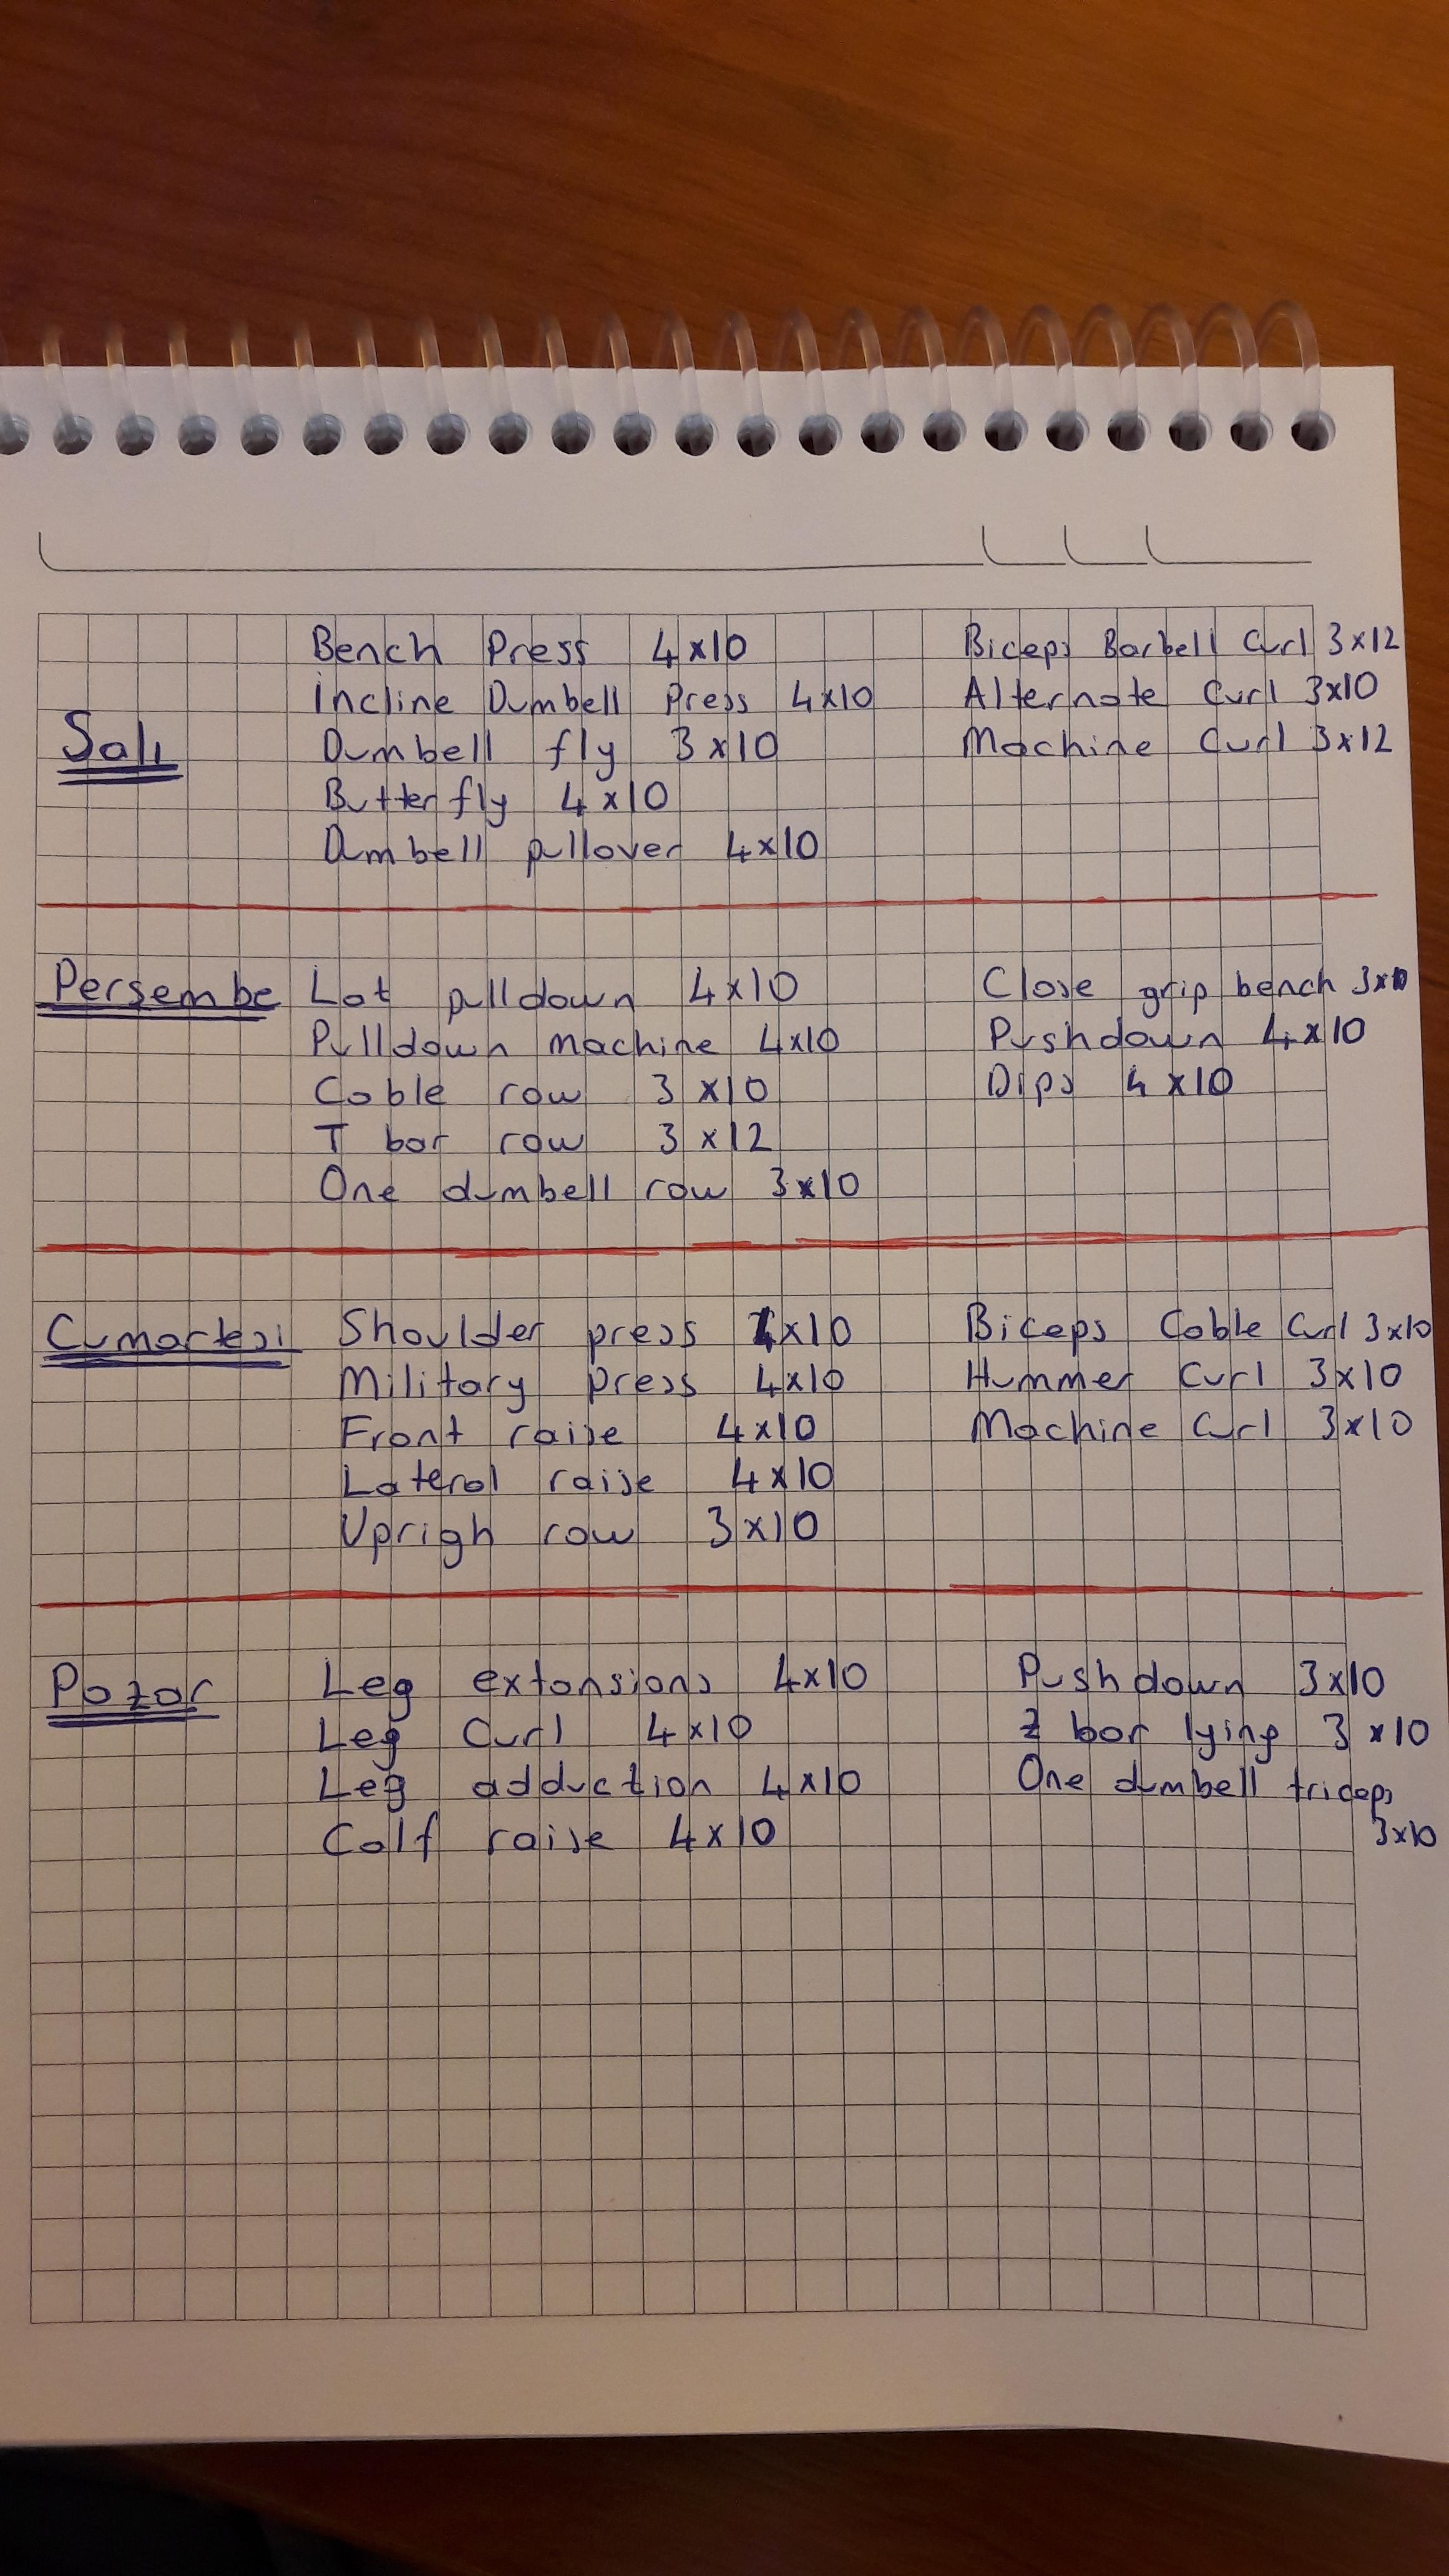 Bench Press 4x10
İncline Dumbell Press 4x10
Salı
Dumbell fly 3x10
Butterfly 4x10
Dumbell pullover 4x10
Biceps Barbell Curl 3x12
Alternate Curl 3x10
Machine Curl 3x12
Persembe
Lat pulldown 4x10
Pulldown machine 4x10
Cable row 3x10
T bar row 3x12
One dumbell row 3x10
Close grip bench 3x10
Pushdown 4x10
Dips 4x10
Cumartesi
Shoulder press 4x10
Military press 4x10
Front raise 4x10
Lateral raise 4x10
Uprigh row 3x10
Biceps Cable Curl 3x10
Hummer Curl 3x10
Machine Curl 3x10
Pazar
Leg extansions 4x10
Leg Curl 4x10
Leg adduction 4x10
Calf raise 4x10
Pushdown 3x10
Z bar lying 3x10
One dumbell triceps
3x10